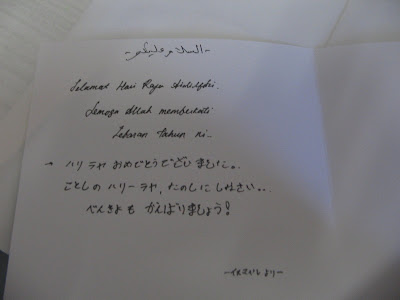 -السلام عليكم-
Selamat Hari Raya Aidilfitri.
Semoga Allah memberkati
Lebaran tahun ni-
→ ハリラヤ おめでとうございました。
ことしの ハリーラヤ、たのしに しなさい..
べんきょも がんばりましょう!
より-